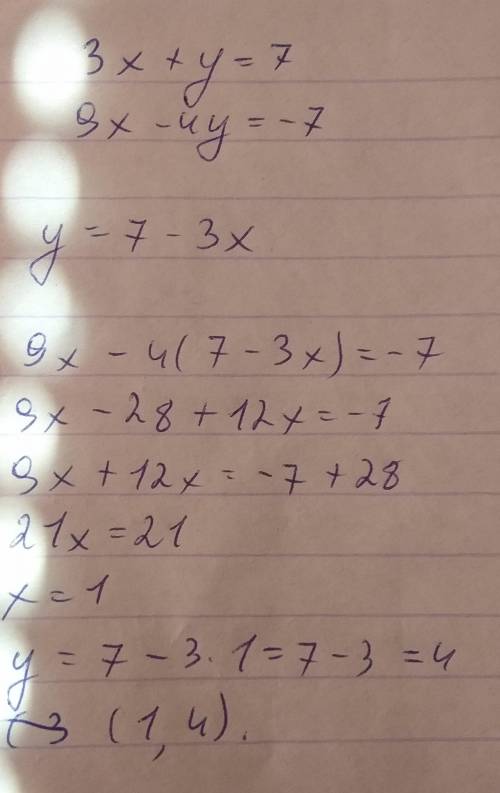 3x + y = 7
9x - 4y = -7
y = 7 - 3x
9x - 4(7 - 3x) = -7
9x - 28 + 12x = -7
9x + 12x = -7 + 28
21x = 21
x = 1
y = 7 - 3 · 1 = 7 - 3 = 4
(1, 4).